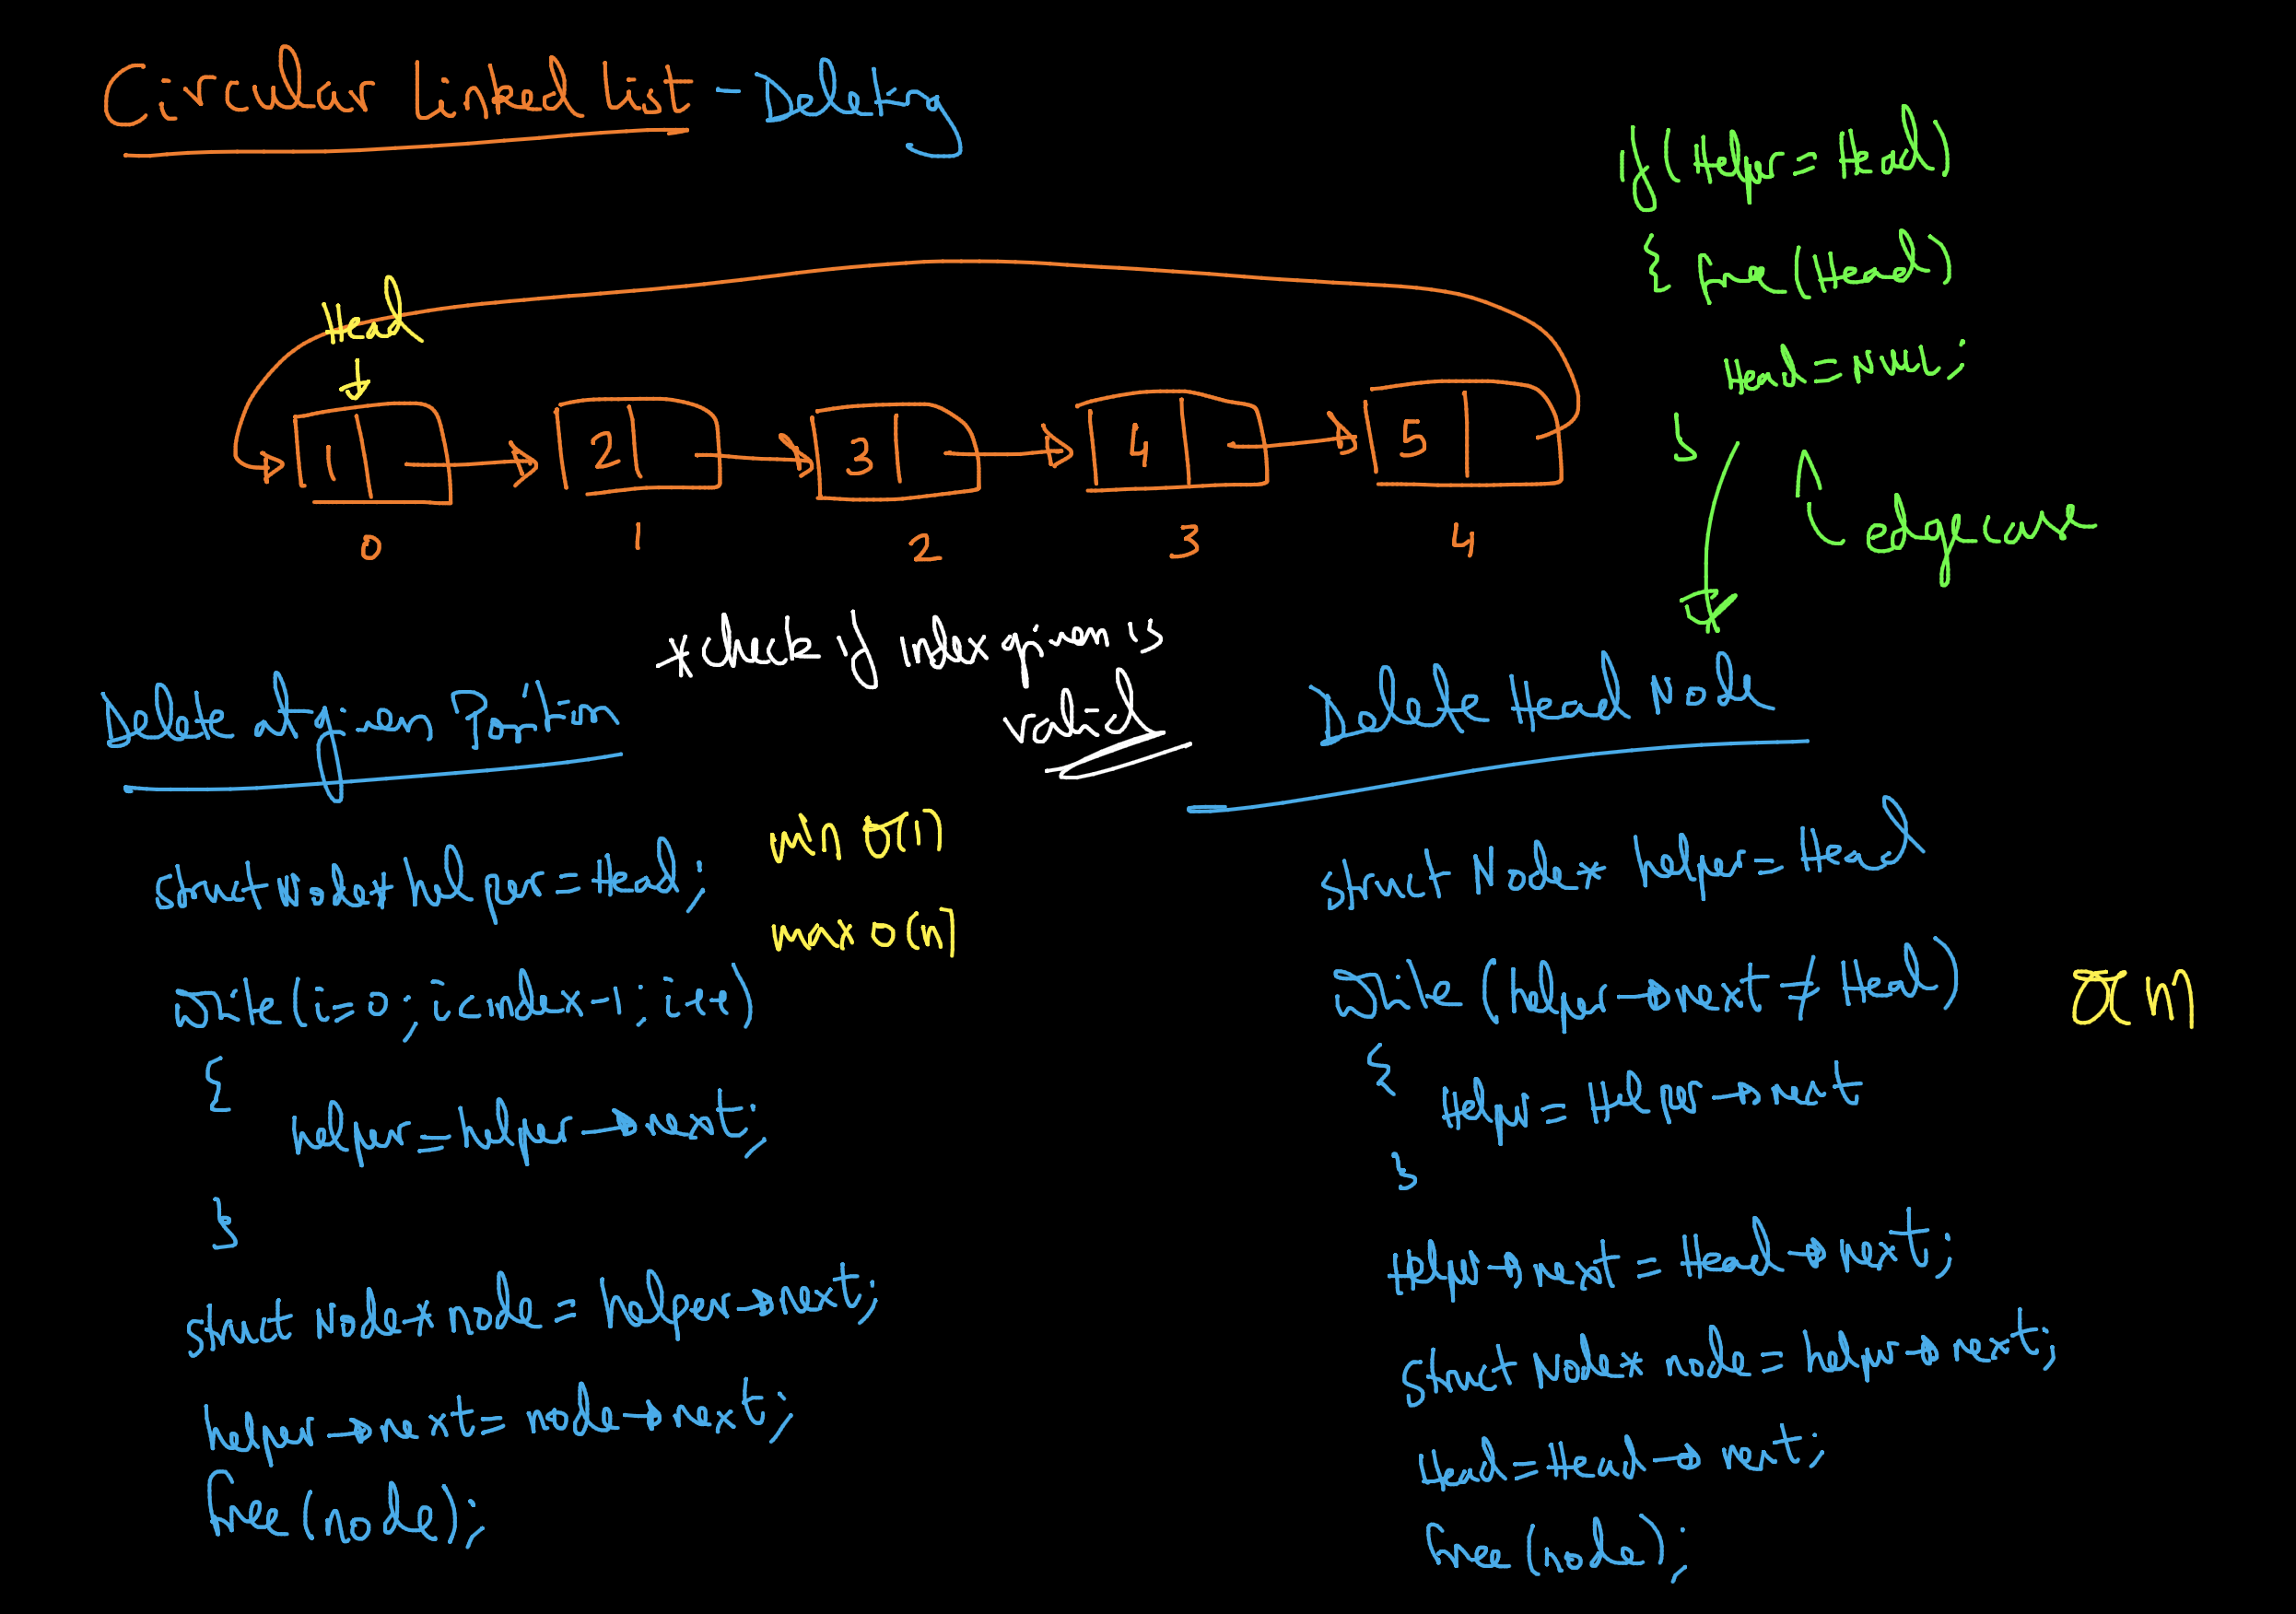 Circular Linked List - Deleting
if(Helper = Head)
{ free(Head)
Head = NULL;
}
edgecase
Head
1 2 3 4 5
0 1 2 3 4
*check if index given is
valid
Delete at given Position
min O(1)
struct Node* helper = Head;
max O(n)
while(i=0; i<index-1; i++)
{
helper = helper→next;
}
struct Node* node = helper→next;
helper→next = node→next;
free(node);
Delete Head Node
struct Node* helper = Head
while (helper→next ≠ Head)
O(n)
{
Helper = Helper→next
}
Helper→next = Head→next;
struct Node* node = helper→next;
Head = Head→next;
free(node);